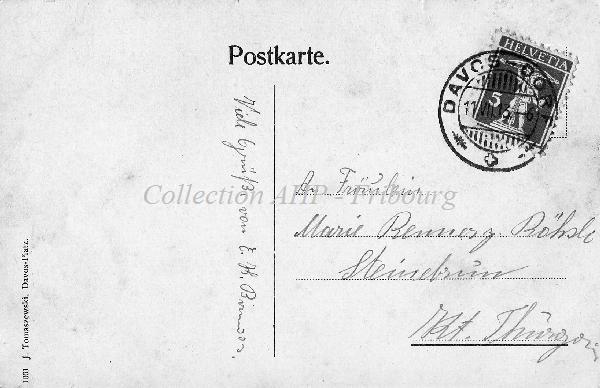 Postkarte.
HELVETIA
5
DAVOS DORF
11.VII
Viele Grüße von E. K.
An Fräulein
Marie
Steinebrun
Kt. Thurgau
Collection AHP - Fribourg
1051 J. Tomaszewski, Davos-Platz.